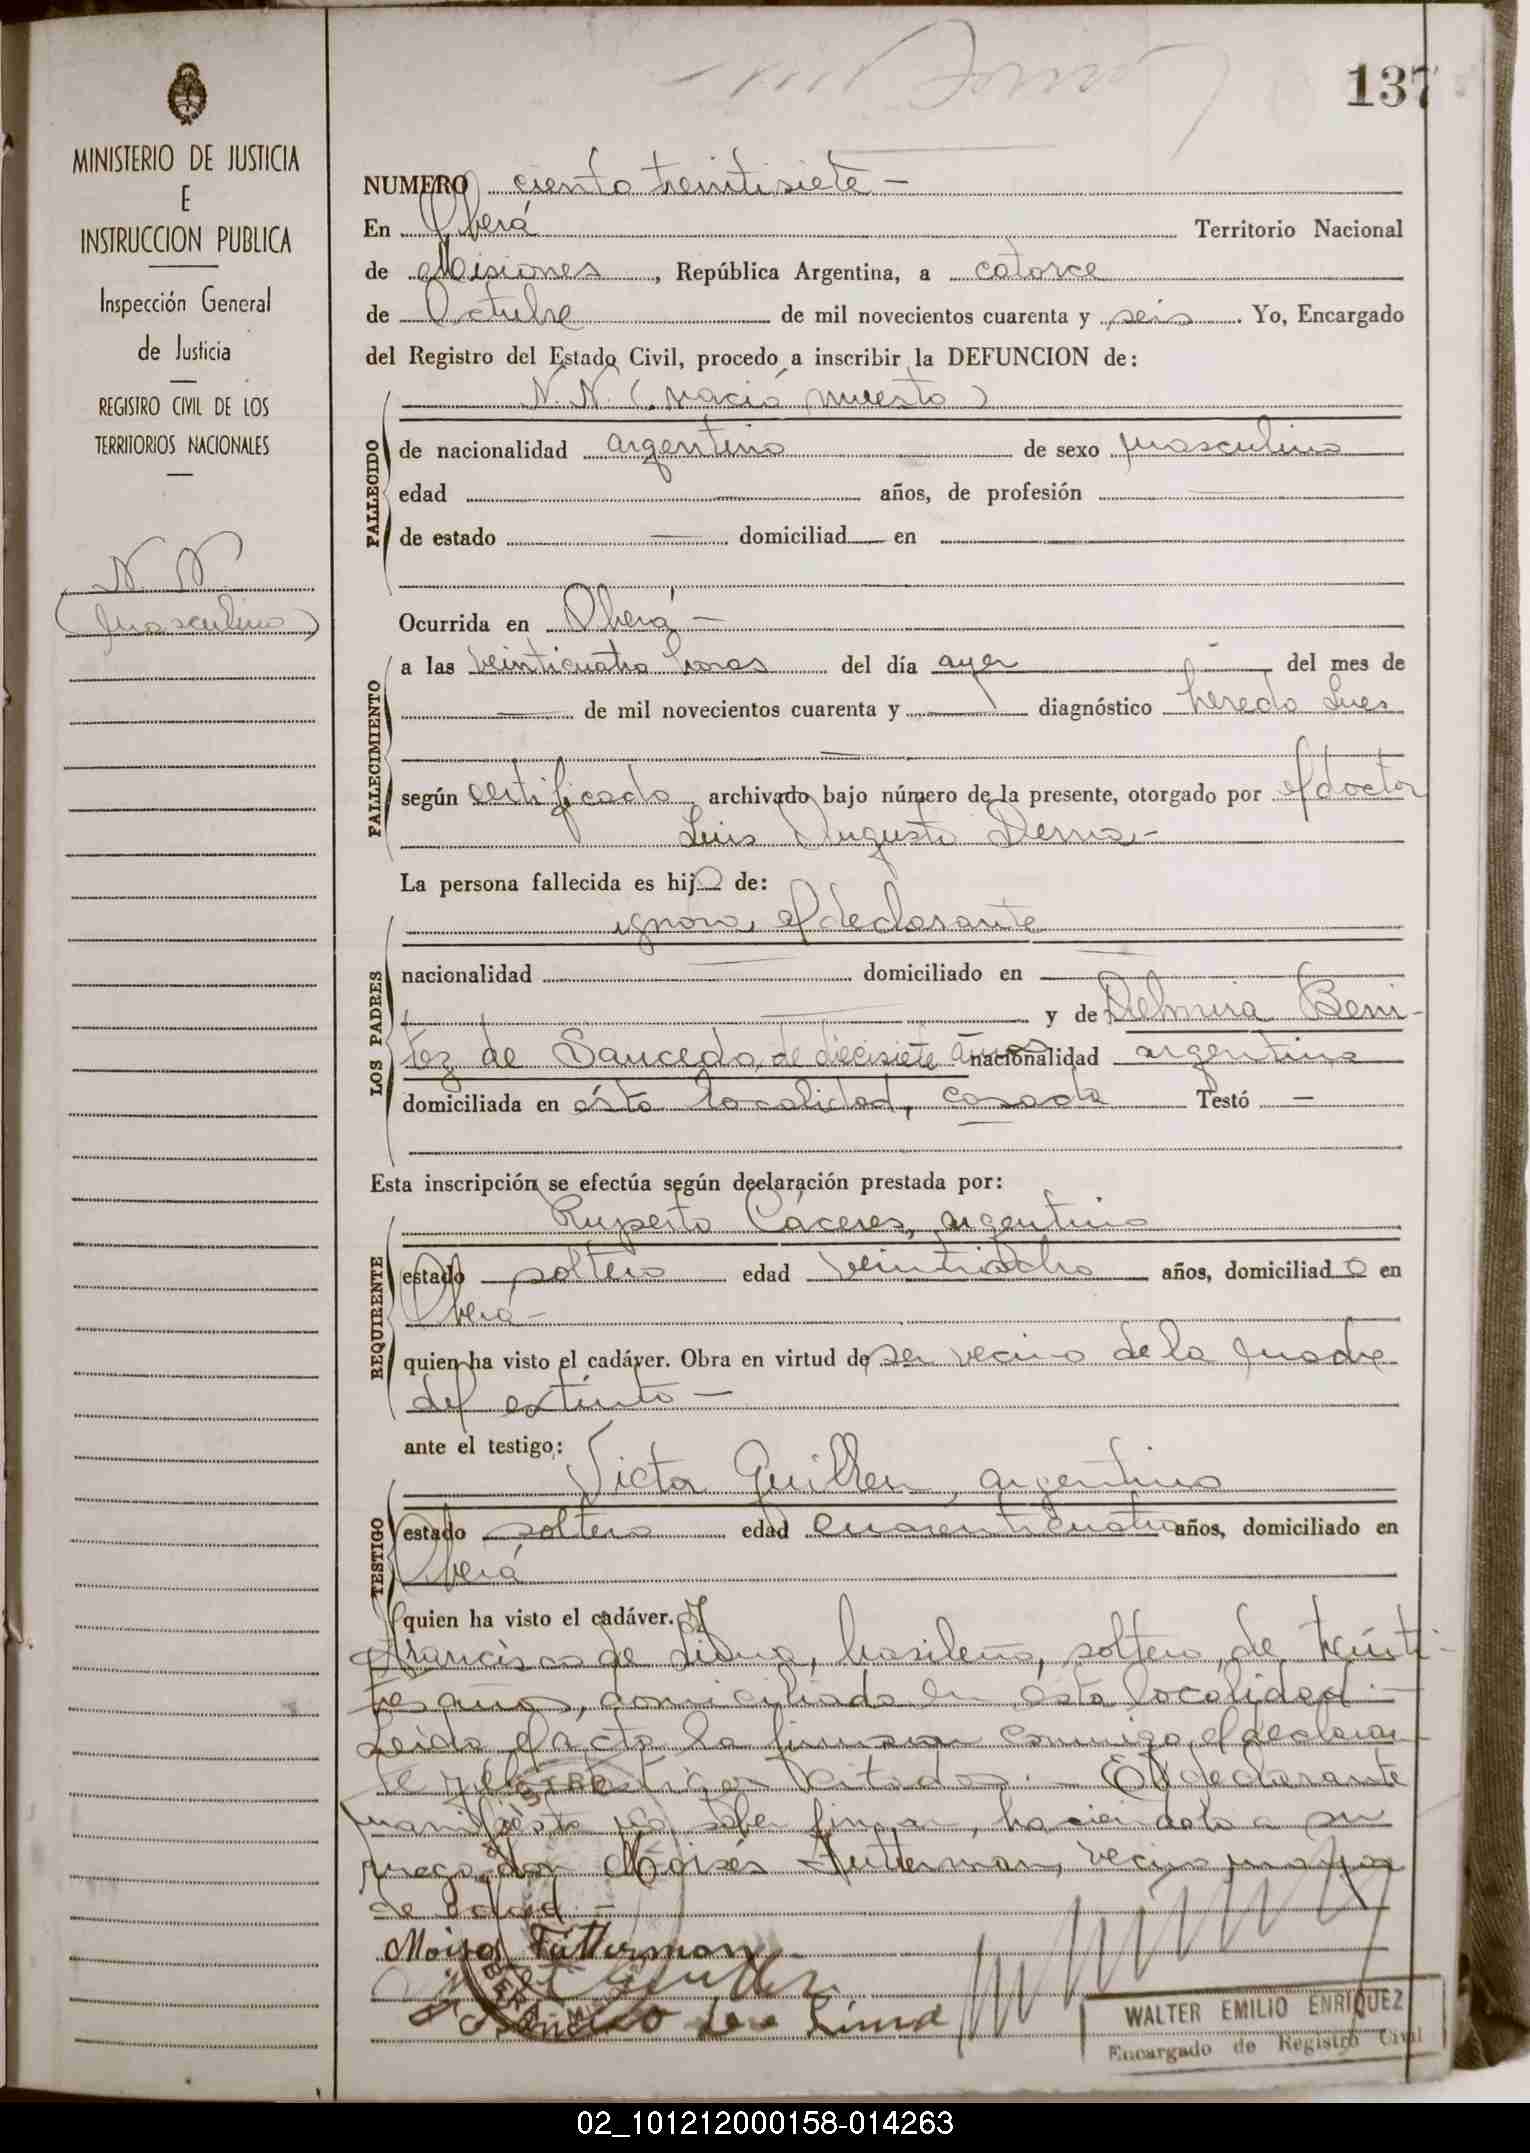 137
MINISTERIO DE JUSTICIA
E
INSTRUCCION PUBLICA
Inspección General
de Justicia
REGISTRO CIVIL DE LOS
TERRITORIOS NACIONALES
N. N.
(masculino)
NUMERO ciento treintisiete —
En Oberá Territorio Nacional
de Misiones, República Argentina, a catorce
de Octubre de mil novecientos cuarenta y seis. Yo, Encargado
del Registro del Estado Civil, procedo a inscribir la DEFUNCION de:
N. N. (nació muerto)
FALLECIDO
de nacionalidad argentino de sexo masculino
edad años, de profesión
de estado — domiciliad en
Ocurrida en Oberá —
FALLECIMIENTO
a las veinticuatro horas del día ayer del mes de
— de mil novecientos cuarenta y — diagnóstico heredo lues
según certificado archivado bajo número de la presente, otorgado por el doctor
Luis Augusto —
La persona fallecida es hijo de:
LOS PADRES
ignora el declarante
nacionalidad — domiciliado en —
— y de Delmira Beni-
tez de Sauceda, de diecisiete años nacionalidad argentina
domiciliada en ésta localidad, casada Testó —
Esta inscripción se efectúa según declaración prestada por:
REQUIRENTE
Ruperto Cáceres, argentino
estado soltero edad veintiocho años, domiciliado en
Oberá —
quien ha visto el cadáver. Obra en virtud de ser vecino de la madre
del extinto —
ante el testigo:
TESTIGO
Victor Guillen, argentino
estado soltero edad cuarenticuatro años, domiciliado en
Oberá
quien ha visto el cadáver. y
Francisco de Lima, brasileño, soltero, de treinti-
tres años, domiciliado en ésta localidad —
Leída el acta la firman conmigo el declaran
te y los testigos citados. — El declarante
manifiesta no saber firmar, haciéndolo a su
ruego don Moisés Futterman, vecino mayor
de edad. —
Moises Futterman
Guillen
Francisco de Lima
WALTER EMILIO ENRIQUEZ
Encargado de Registro Civil
02_101212000158-014263